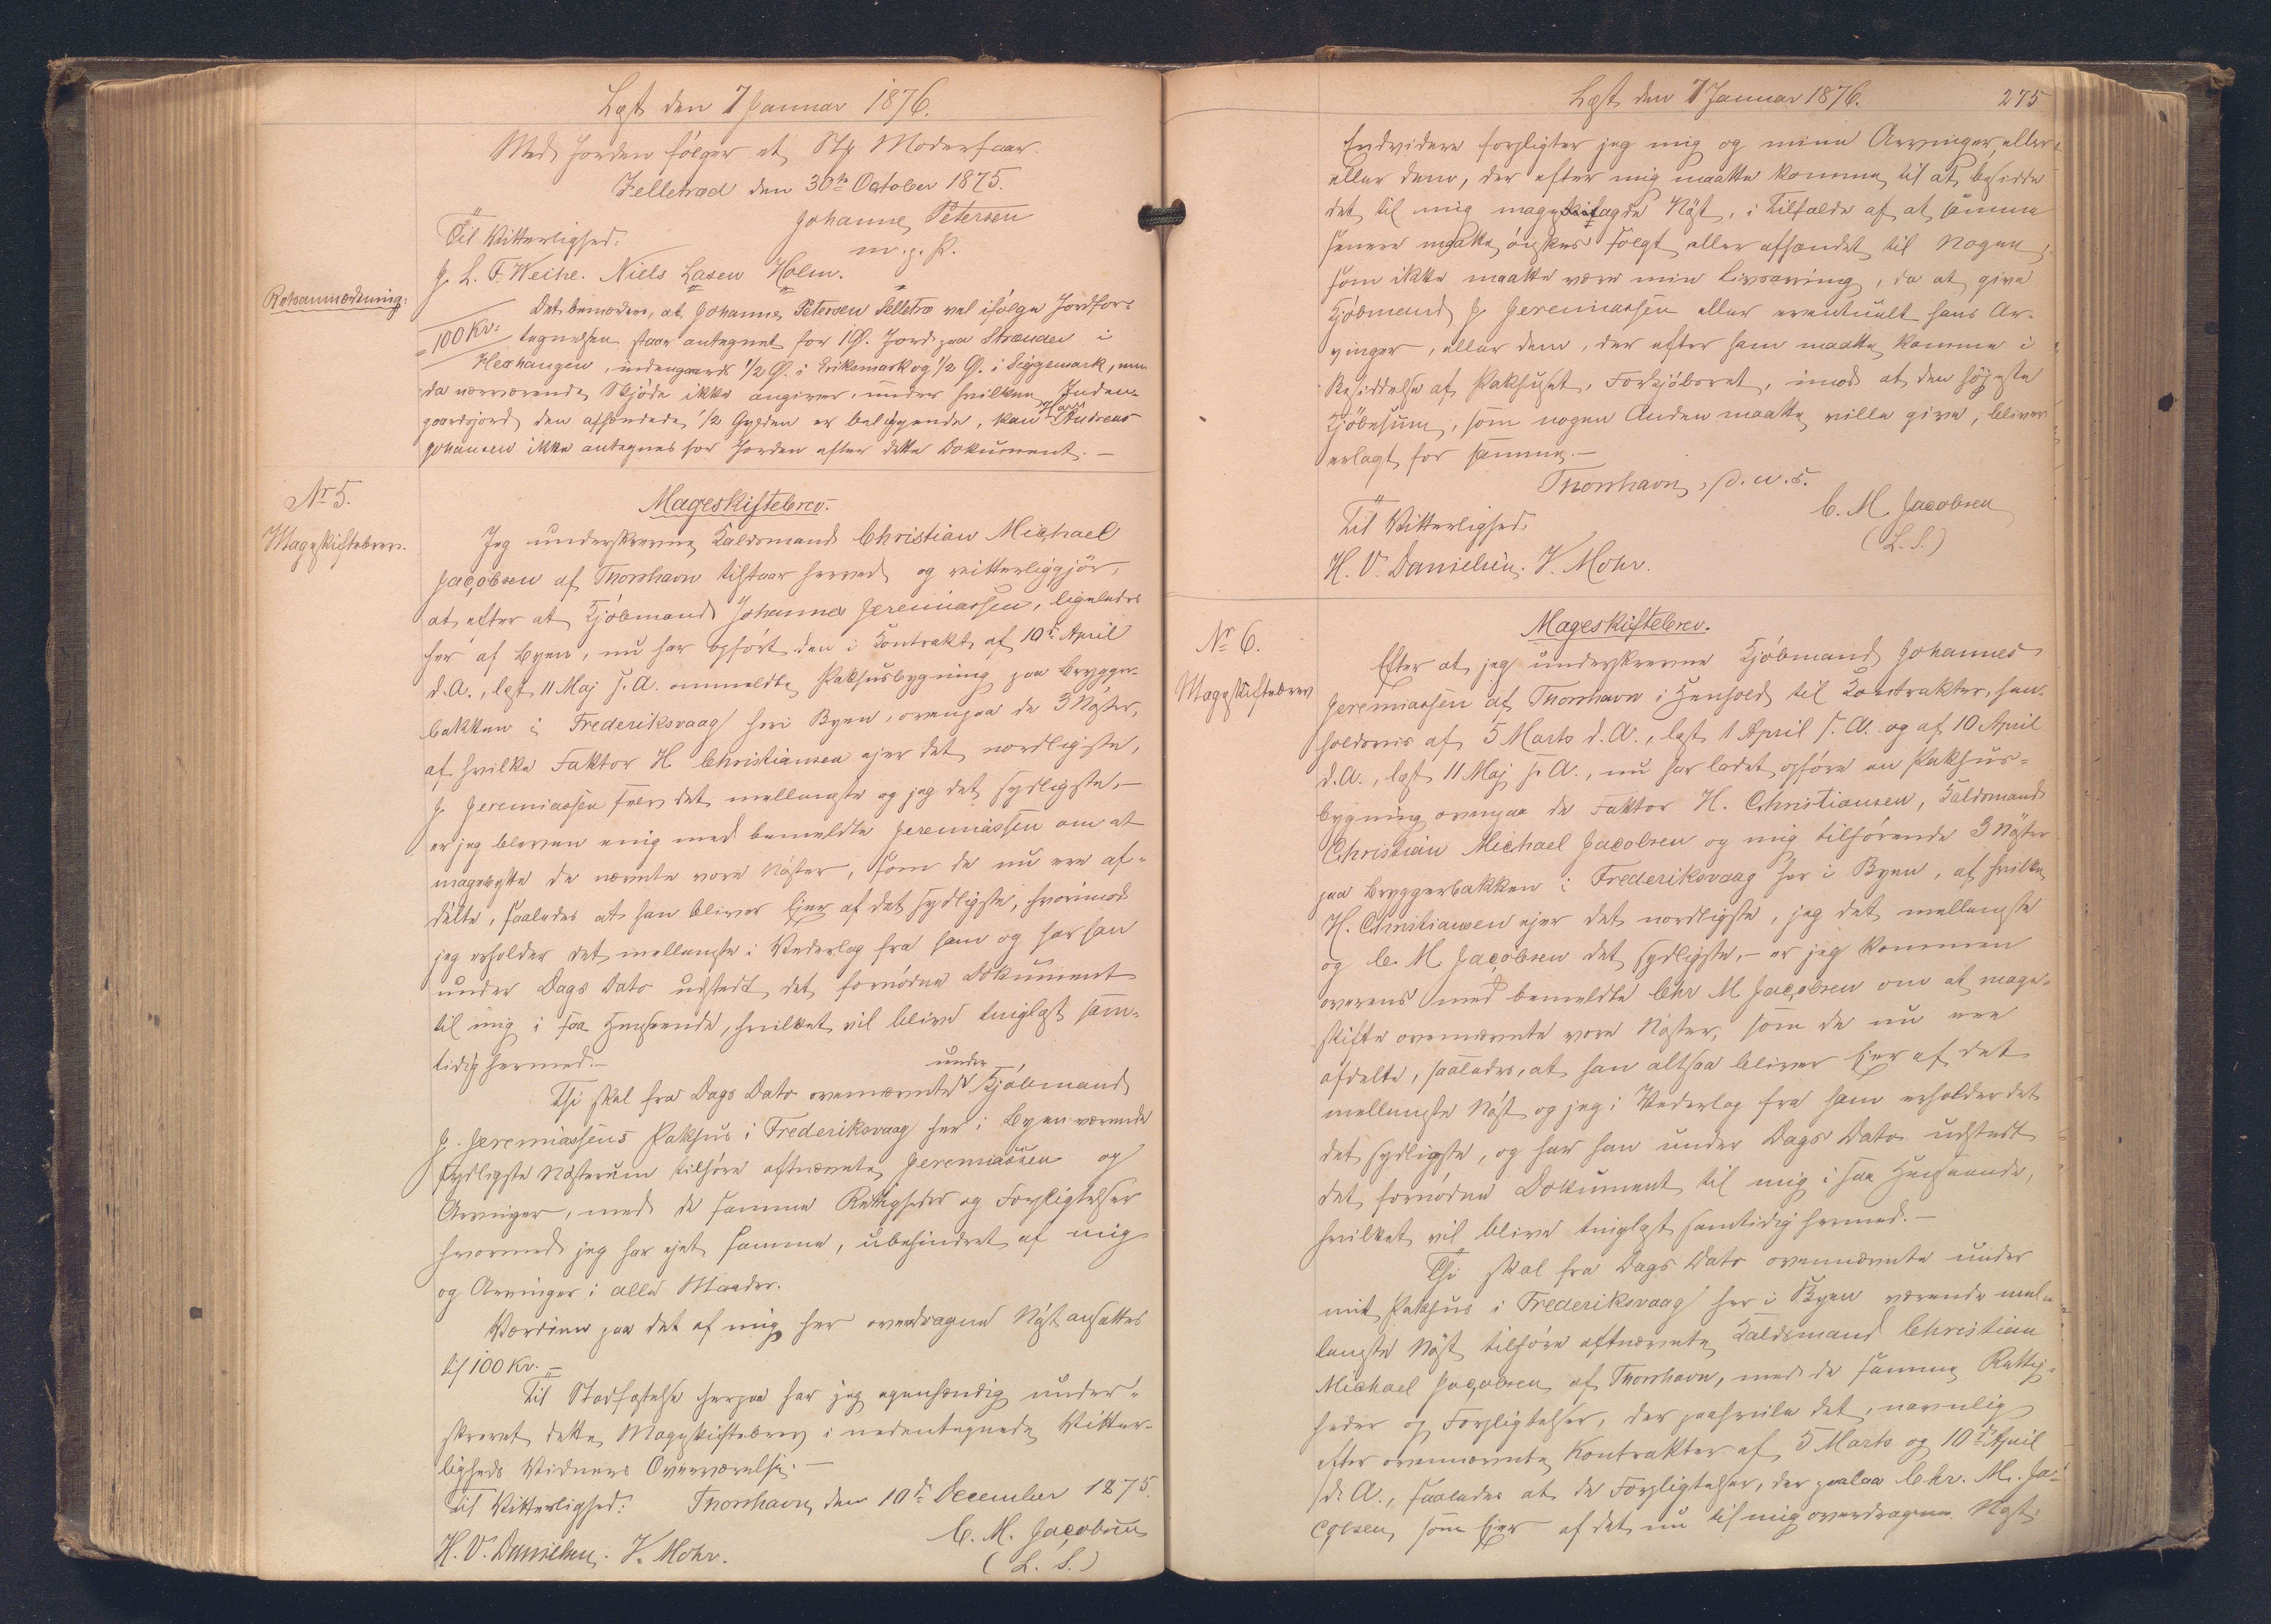 Læst den 7 Januar 1876.
Med Jorden følger et Stk Moderfaar.
Selletrad den 30te October 1875.
Johanne Petersen
m. f. P.
Til Vitterlighed:
J. L. F. Weihe. Niels Lasen Holm.
Retsanmærkning:
Det bemærkes, at Johanne Petersen Selletræ vel ifølge Jordfor-
100 Kr.
tegnelsen staar antegnet for 1 G. Jord paa Strænder i
Herhaugen, indengaards 1/2 G. i Eriksmark og 1/2 G. i Siggemark, men
da nærværende Skjøde ikke angiver, under hvilken Inden-
gaardsjord den afhændede 1/2 Gylden er beliggende, kan Hans Andreas
Johansen ikke antegnes for Jorden efter dette Dokument. —
Nr 5.
Mageskiftebrev.
Mageskiftebrev.
Jeg underskrevne Kaldsmand Christian Michael
Jacobsen af Thorshavn tilstaar herved og vitterliggjør,
at efter at Kjøbmand Johannes Jeremiassen, ligeledes
her af Byen, nu har opført den i Kontrakt af 10de April
d. A., læst 11 Maj s. A. ommeldte Pakhusbygning paa Brygge-
bakken i Frederiksvaag heri Byen, ovenpaa de 3 Nøster,
af hvilke Faktor H. Christiansen ejer det nordligste,
J. Jeremiassen selv det mellemste og jeg det sydligste, —
er jeg bleven enig med bemeldte Jeremiassen om at
magebytte de nævnte vore Nøster, som de nu ere af-
delte, saaledes at han bliver Ejer af det sydligste, hvorimod
jeg erholder det mellemste i Vederlag fra ham og har han
under Dags Dato udstedt det fornødne Dokument
til mig i saa Henseende, hvilket vil blive tinglæst sam-
tidig hermed. —
Thi skal fra Dags Dato ovennævnte under Kjøbmand
J. Jeremiassens Pakhus i Frederiksvaag her i Byen værende
sydligste Nøsterum tilhøre oftnævnte Jeremiassen og
Arvinger, med de samme Rettigheder og Forpligtelser
hvormed jeg har ejet samme, ubehindret af mig
og Arvinger i alle Maader.
Værdien paa det af mig her overdragne Nøst ansættes
til 100 Kr. —
Til Stadfæstelse herpaa har jeg egenhændig under-
skrevet dette Mageskiftebrev i nedentegnede Vitter-
ligheds Vidners Overværelse. —
Til Vitterlighed: Thorshavn den 10de December 1875.
C. M. Jacobsen
H. V. Danielsen. V. Mohr.
(L. S.)
Læst den 7 Januar 1876.
275
Endvidere forpligter jeg mig og mine Arvinger, eller
eller dem, der efter mig maatte komme til at besidde
det til mig mageskiftede Nøst, i Tilfælde af at samme
senere maatte ønskes solgt eller afhændet til Nogen,
som ikke maatte være min Livsarving, da at give
Kjøbmand J. Jeremiassen eller eventuelt hans Ar-
vinger, eller dem, der efter ham maatte komme i
Besiddelse af Pakhuset, Forkjøbsret, imod at den højeste
Kjøbesum, som nogen Anden maatte ville give, bliver
erlagt for samme. —
Thorshavn, d. u. s.
C. M. Jacobsen
Til Vitterlighed:
(L. S.)
H. V. Danielsen. V. Mohr.
Nr 6.
Mageskiftebrev
Mageskiftebrev.
Efter at jeg underskrevne Kjøbmand Johannes
Jeremiassen af Thorshavn i Henhold til Kontrakter, hen-
holdsvis af 5 Marts d. A., læst 1 April s. A. og af 10 April
d. A., læst 11 Maj s. A., nu har ladet opføre en Pakhus-
bygning ovenpaa de Faktor H. Christiansen, Kaldsmand
Christian Michael Jacobsen og mig tilhørende 3 Nøster
paa Bryggerbakken i Frederiksvaag her i Byen, af hvilke
H. Christiansen ejer det nordligste, jeg det mellemste
og C. M. Jacobsen det sydligste, — er jeg kommen
overens med bemeldte Chr M Jacobsen om at mage-
skifte ovennævnte vore Nøster, som de nu ere
afdelte, saaledes, at han altsaa bliver Ejer af det
mellemste Nøst og jeg i Vederlag fra ham erholder det
det sydligste, og har han under Dags Dato udstedt
det fornødne Dokument til mig i saa Henseende,
hvilket vil blive tinglæst samtidig hermed. —
Thi skal fra Dags Dato ovennævnte under
mit Pakhus i Frederiksvaag her i Byen værende mel-
lemste Nøst tilhøre oftnævnte Kaldsmand Christian
Michael Jacobsen af Thorshavn, med de samme Rettig-
heder og Forpligtelser, der paahvile det, navnlig
efter ovennævnte Kontrakter af 5 Marts og 10de April
d. A., saaledes at de Forpligtelser, der paalaa Chr. M. Ja-
cobsen, som Ejer af det nu til mig overdragne Nøst,